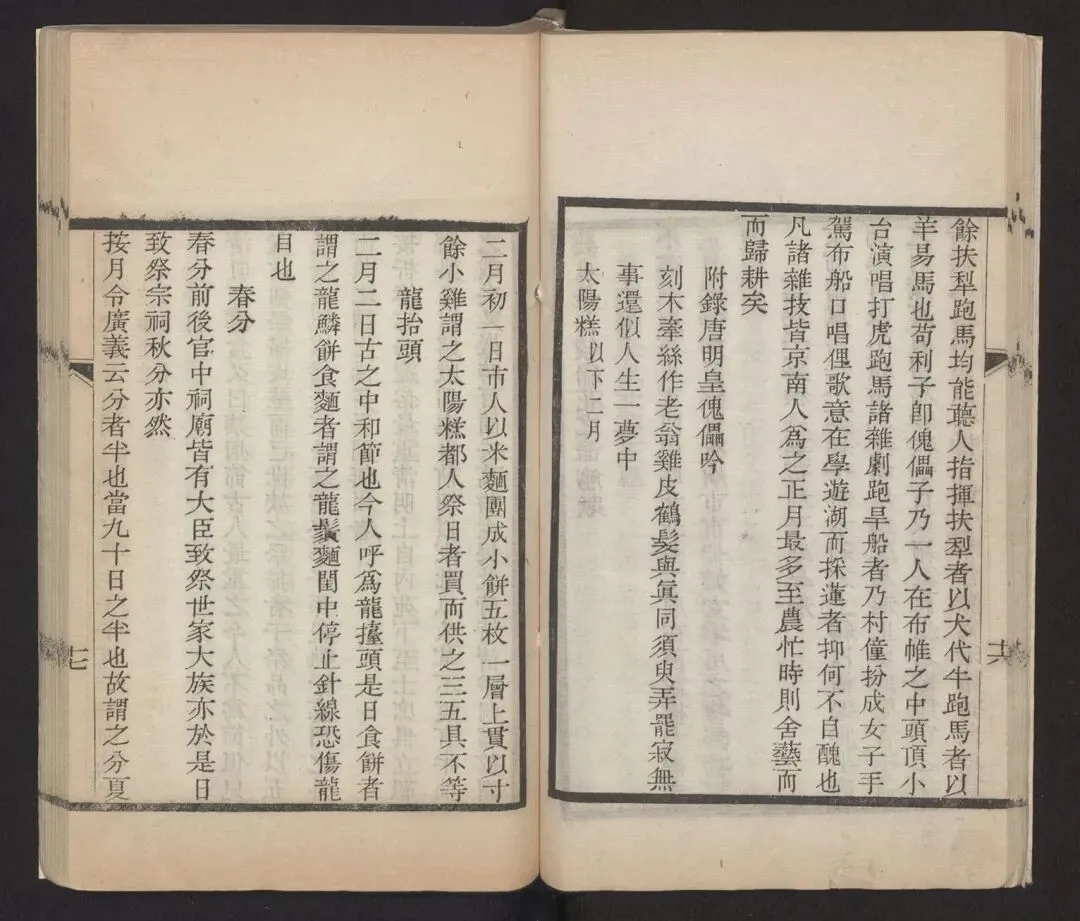 餘扶犁跑馬均能聽人指揮扶犁者以犬代牛跑馬者以
羊易馬也苟利子卽傀儡子乃一人在布帷之中頭頂小
台演唱打虎跑馬諸雜劇跑旱船者乃村僮扮成女子手
駕布船口唱俚歌意在學遊湖而採蓮者抑何不自醜也
凡諸雜技皆京南人爲之正月最多至農忙時則舍藝而
而歸耕矣
附錄唐明皇傀儡吟
刻木牽絲作老翁雞皮鶴髮與眞同須臾弄罷寂無
事還似人生一夢中
太陽糕以下二月
十六
二月初一日市人以米麵團成小餅五枚一層上貫以寸
餘小雞謂之太陽糕都人祭日者買而供之三五具不等
龍抬頭
二月二日古之中和節也今人呼爲龍擡頭是日食餅者
謂之龍鱗餅食麵者謂之龍鬚麵閨中停止針線恐傷龍
目也
春分
春分前後官中祠廟皆有大臣致祭世家大族亦於是日
致祭宗祠秋分亦然
按月令廣義云分者半也當九十日之半也故謂之分夏
十七